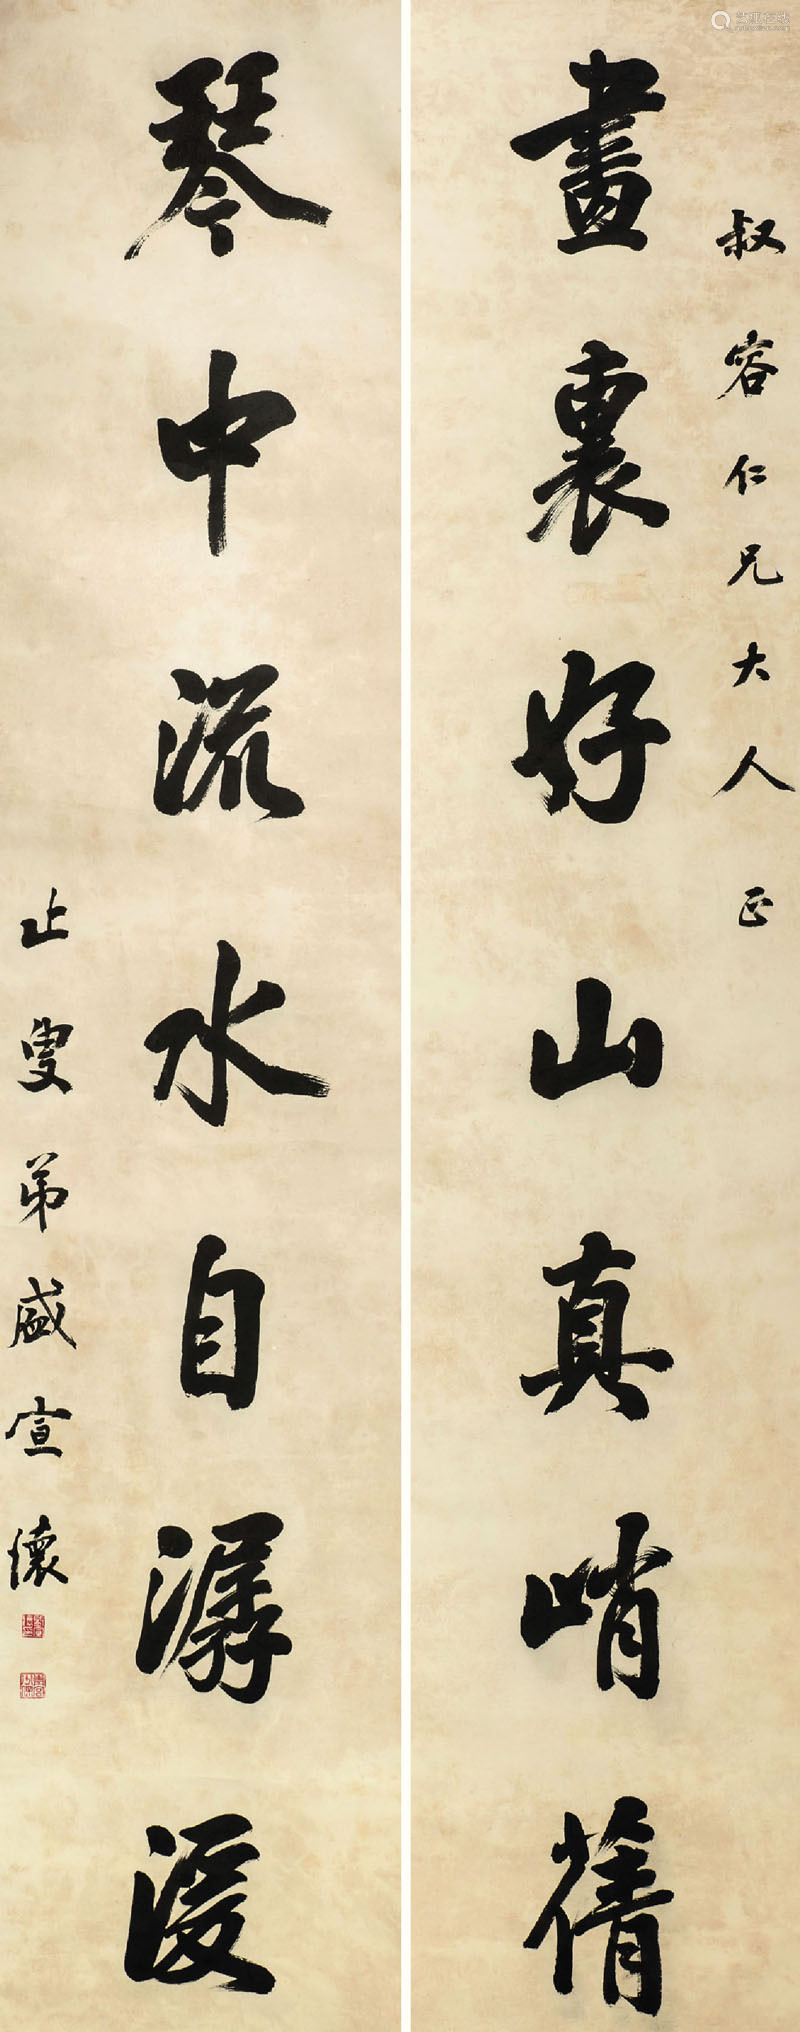 叔容仁兄大人正
畫裏好山真峭蒨
琴中流水自潺湲
止叟弟盛宣懷